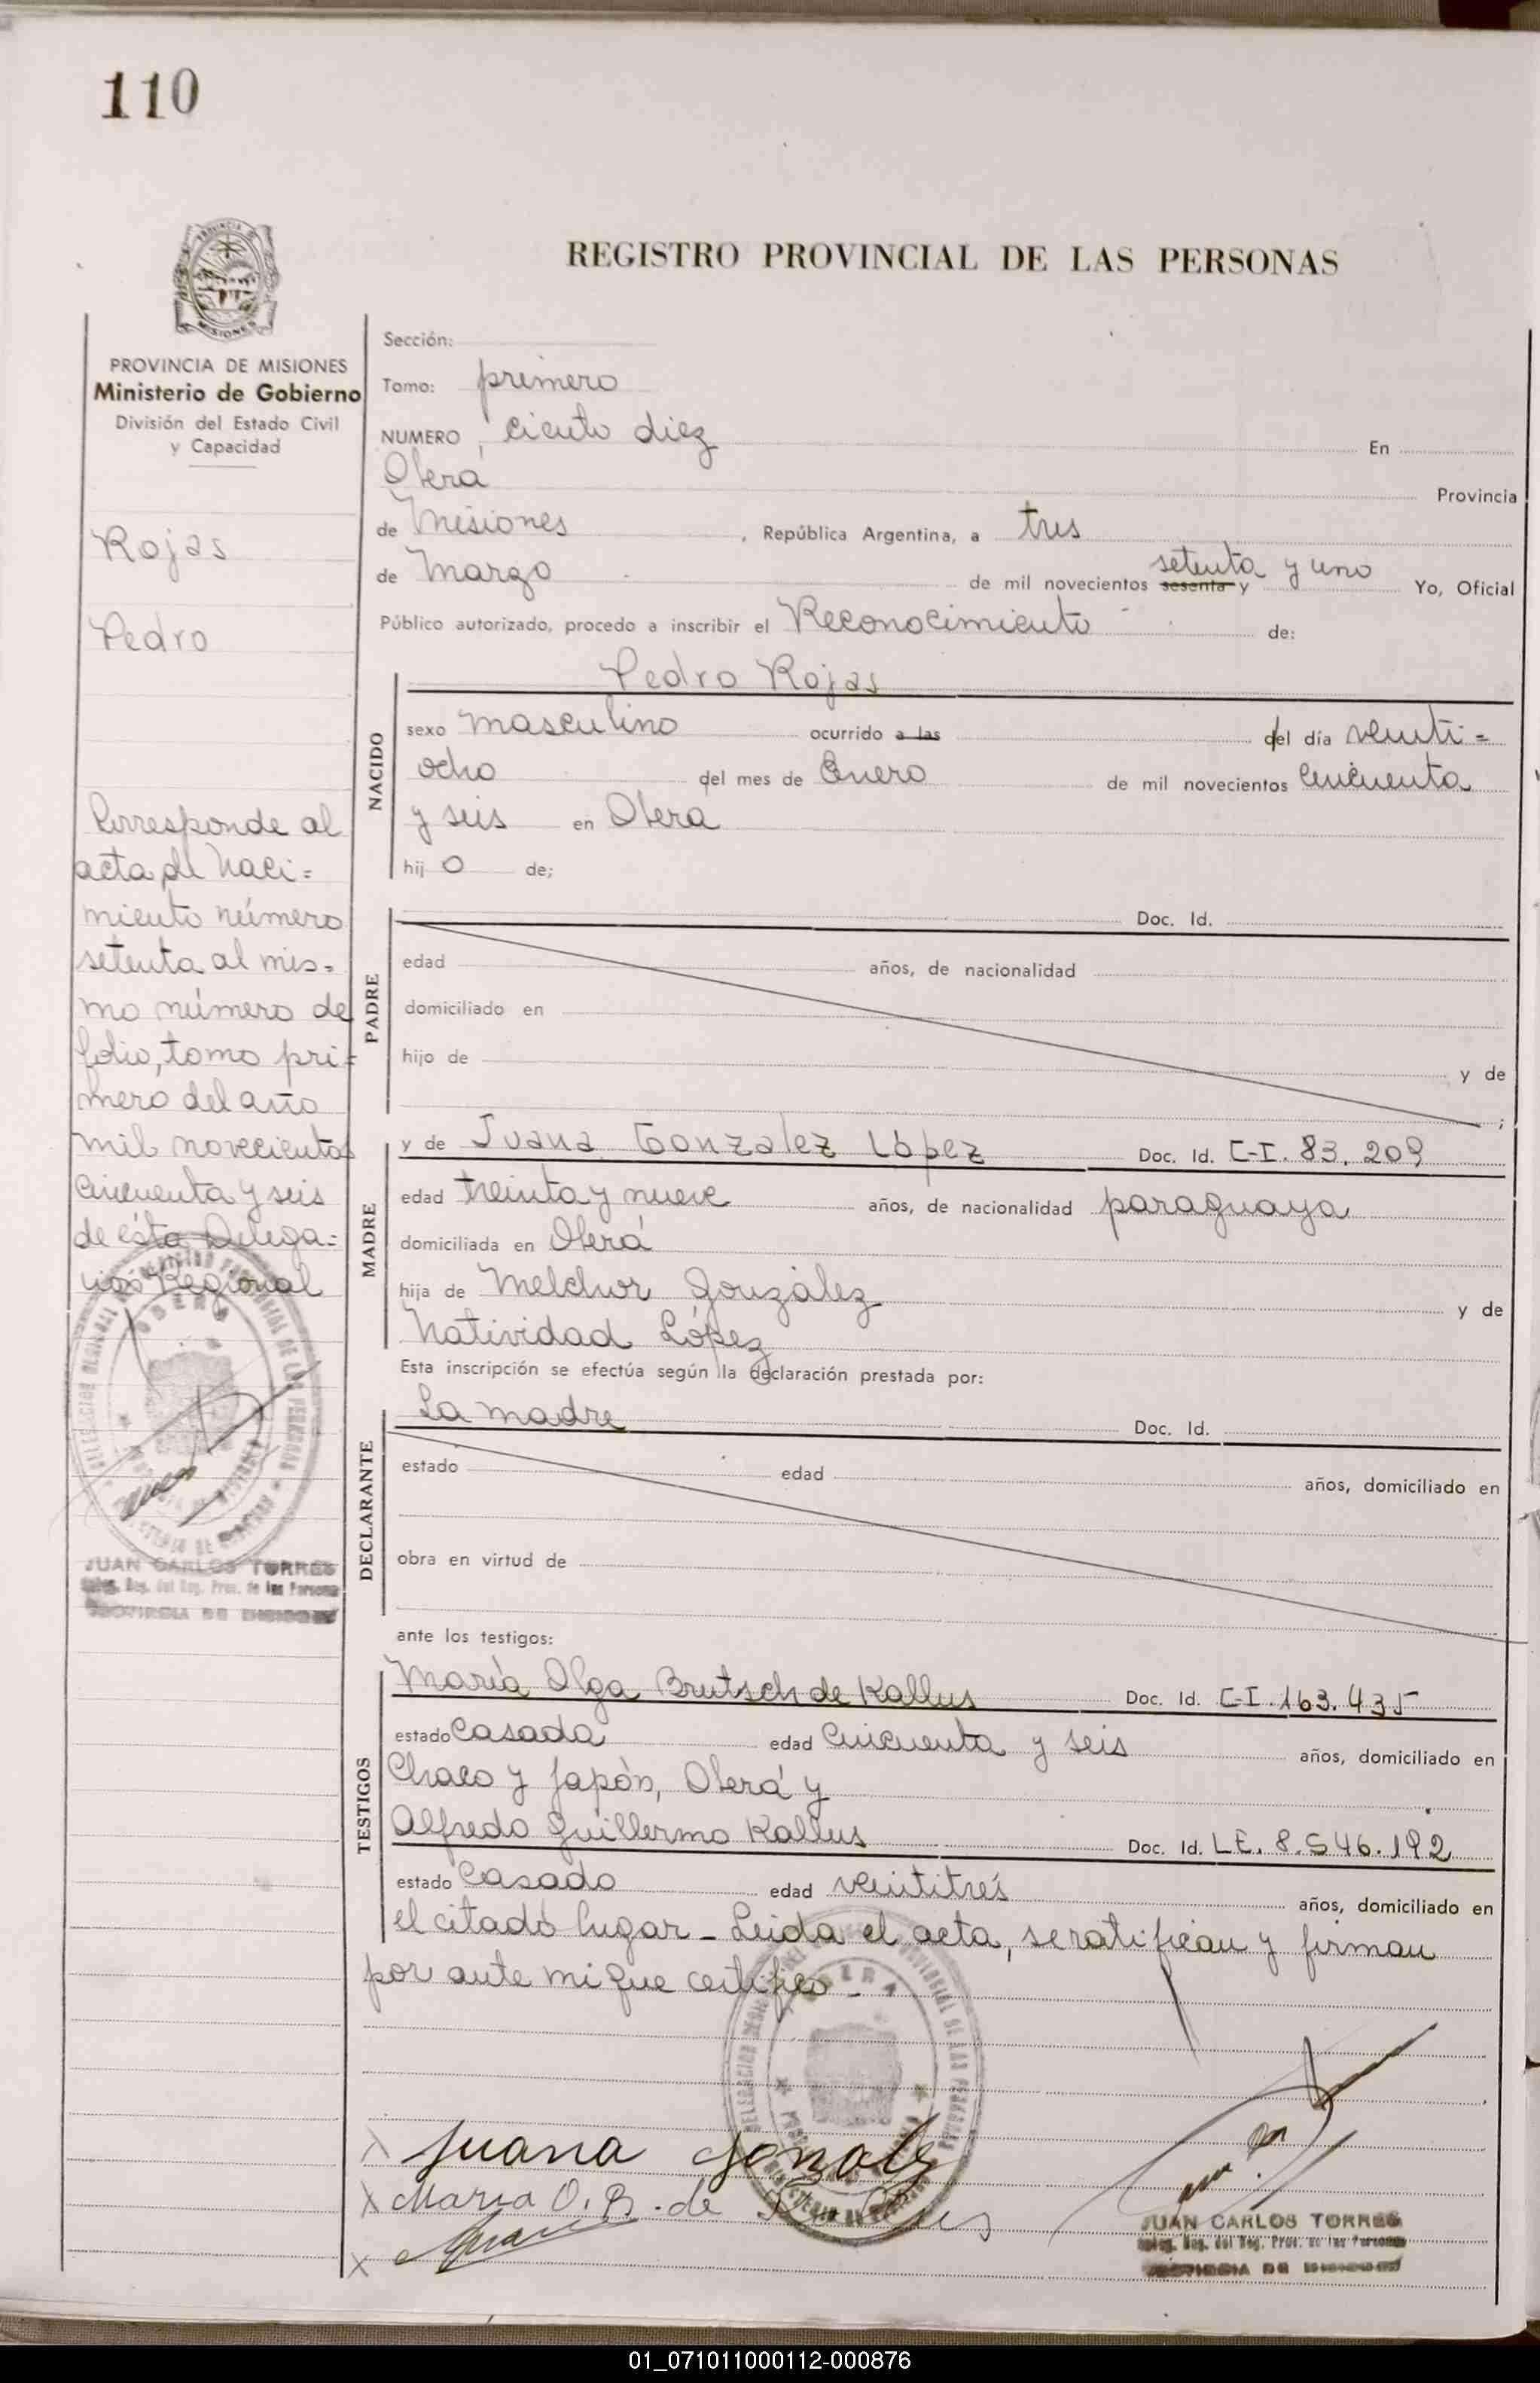 110
REGISTRO PROVINCIAL DE LAS PERSONAS
PROVINCIA DE MISIONES
Ministerio de Gobierno
División del Estado Civil
y Capacidad
Rojas
Pedro
Corresponde al
acta de Naci=
miento número
setenta al mis=
mo número de
folio, tomo pri=
mero del año
mil novecientos
cincuenta y seis
de ésta Delega=
ción Regional
JUAN CARLOS TORRES
Deleg. Reg. del Reg. Prov. de las Personas
PROVINCIA DE MISIONES
Sección:
Tomo: primero
NUMERO ciento diez En
Oberá Provincia
de Misiones, República Argentina, a tres
de Marzo de mil novecientos sesenta y setenta y uno Yo, Oficial
Público autorizado, procedo a inscribir el Reconocimiento de:
NACIDO
Pedro Rojas
sexo masculino ocurrido a las del día venti=
ocho del mes de Enero de mil novecientos cincuenta
y seis en Oberá
hij o de;
PADRE
Doc. Id.
edad años, de nacionalidad
domiciliado en
hijo de y de
;
MADRE
y de Juana Gonzalez López Doc. Id. C-I. 83.209
edad treinta y nueve años, de nacionalidad paraguaya
domiciliada en Oberá
hija de Melchor González y de
Natividad López
Esta inscripción se efectúa según la declaración prestada por:
DECLARANTE
La madre Doc. Id.
estado edad años, domiciliado en
obra en virtud de
ante los testigos:
TESTIGOS
María Olga Brutsch de Kallus Doc. Id. C-I. 163.435
estado Casada edad cincuenta y seis años, domiciliado en
Chaco y Japón, Oberá y
Alfredo Guillermo Kallus Doc. Id. LE. 8.546.192
estado Casado edad veintitrés años, domiciliado en
el citado lugar - Leída el acta, se ratifican y firman
por ante mi que certifico -
x Juana Gonzalez
x Maria O. B. de Kallus
x
JUAN CARLOS TORRES
Deleg. Reg. del Reg. Prov. de las Personas
PROVINCIA DE MISIONES
01_071011000112-000876